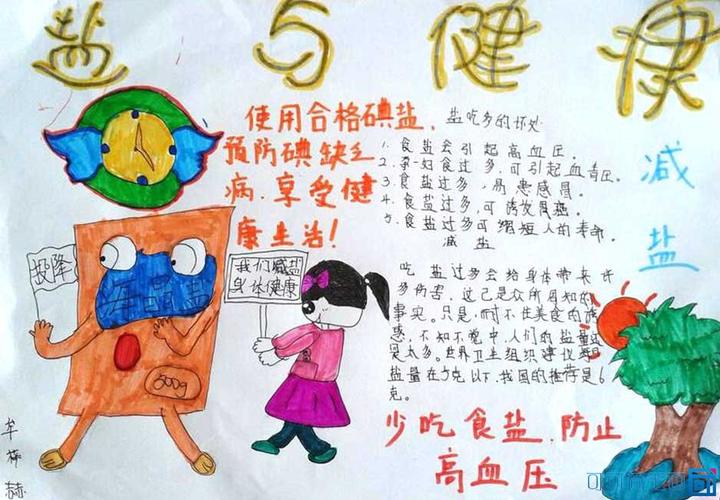 盐与健康
使用合格碘盐、
预防碘缺乏
病、享受健
康生活！
盐吃多的坏处
1. 食盐会引起高血压。
2. 孕妇食过多，可引起血压。
3. 食盐过多，易患感冒。
4. 食盐过多，可诱发胃癌。
5. 食盐过多可缩短人的寿命。
减盐
吃盐过多会给身体带来许
多伤害，这已是众所周知的
事实。只是，耐不住美食的诱
惑，不知不觉中，人们的盐量还
是太多。世界卫生组织建议每日
盐量在5克以下，我国的推荐是6
克。
减
盐
投降
海晶盐
500g
我们减盐
身体健康
少吃食盐、防止
高血压